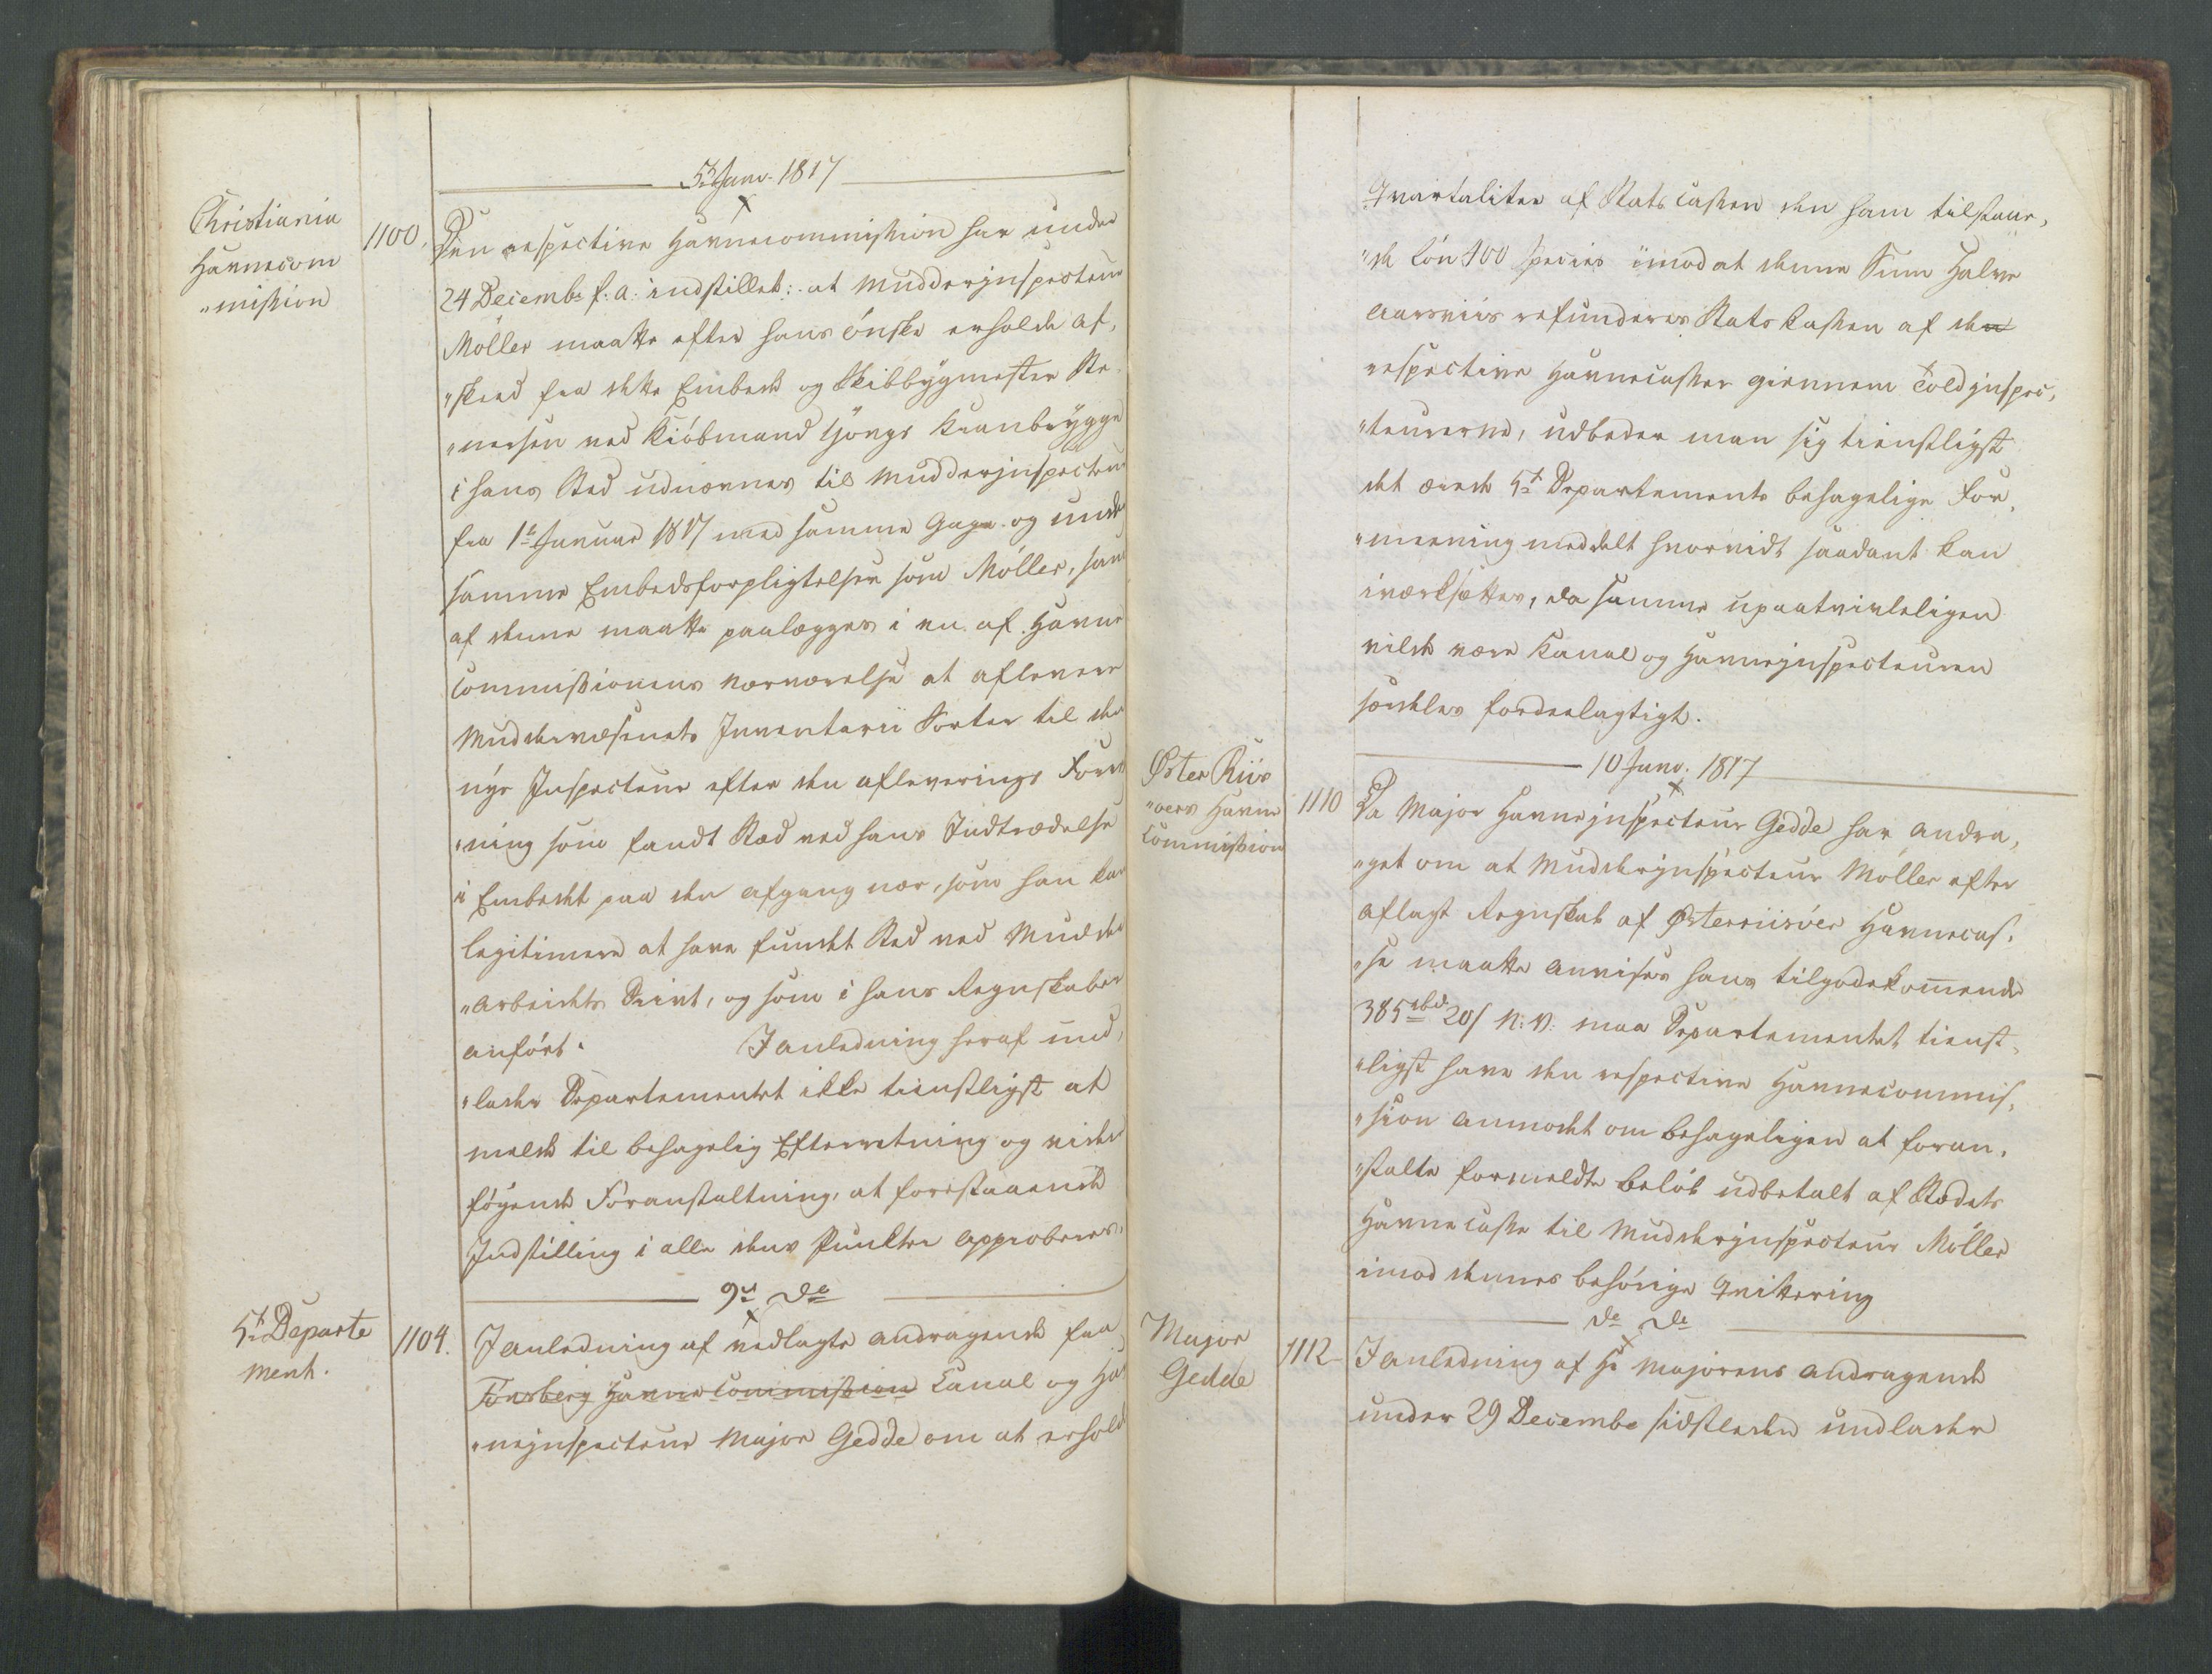 5te Janv. 1817
Christiania
Havnecom
"mission
1100.
Den respective Havnecommission har under
24 Decembr f: a: indstillet: at Mudderinspecteur
Möller maatte efter hans önske erholde af,
"skeed fra dette Embede og Skibbygmester Ste
"nersen ved Kiöbmand Kranbrygge
i hans Sted udnævnes til Mudderinspecteur
fra 1te Januar 1817 med samme Gage og under
samme Embedsforpligtelser som Möller, som
af denne maatte paalægges i en af Havne
Commissionens nærværelse at aflevere
Muddervæsenets Inventarii Sorter til den
nye Inspecteur efter den afleverings Forret
"ning som fandt Sted ved hans Indtrædelse
i Embedet paa den afgang nær, som han kan
legitimere at have fundet Sted ved Mudder
"arbeidets Drivt, og som i hans Regnskaber
anfört. I anledning heraf und,
"lader Departementet ikke tienstligst at
melde til behagelig Efterretning og videre
föyende Foranstaltning, at forestaaende
Indstilling i alle dens Punkter approberes.
9de do
5te Departe
ment.
1104.
I anledning af vedlagte andragende fra
Tönsberg Havne Commission Canal og Hav
"neinspecteur Major Gedde om at erholde
qvartaliter af Stats Cassen den ham tilstaae,
"de Lön 400 Species imod at denne Sum Halve
aarsviis refunderes Statskassen af den
respective Havnecasser giennem Toldinspec,
"teurerne, udbeder man sig tienstligst
det ærede 5te Departements behagelige For,
"meening meddelt hvorvidt saadant kan
iværksættes, da samme upaatvivleligen
vilde være Kanal og Havneinspecteuren
særdeles fordeelagtigt.
10 Janv. 1817
Øster Riis
"oers Havne
Commission
1110
Da Major Havneinspecteur Gedde har andra,
"get om at Mudderinspecteur Möller efter
aflagt Regnskab af Østerriisöer Havnecas,
"se maatte anvises hans tilgodekommende
385 rbd 20 s N: V: maa Departementet tienst,
"ligst have den respective Havnecommis,
"sion anmodet om behageligen at foran,
"stalte formeldte belöb udbetalt af Stedets
Havne Casse til Mudderinspecteur Möller
imod dennes behörige Qvittering
do do
Major
Gedde
1112
I anledning af Hr Majorens andragende
under 29 Decembr sidstleden undlader